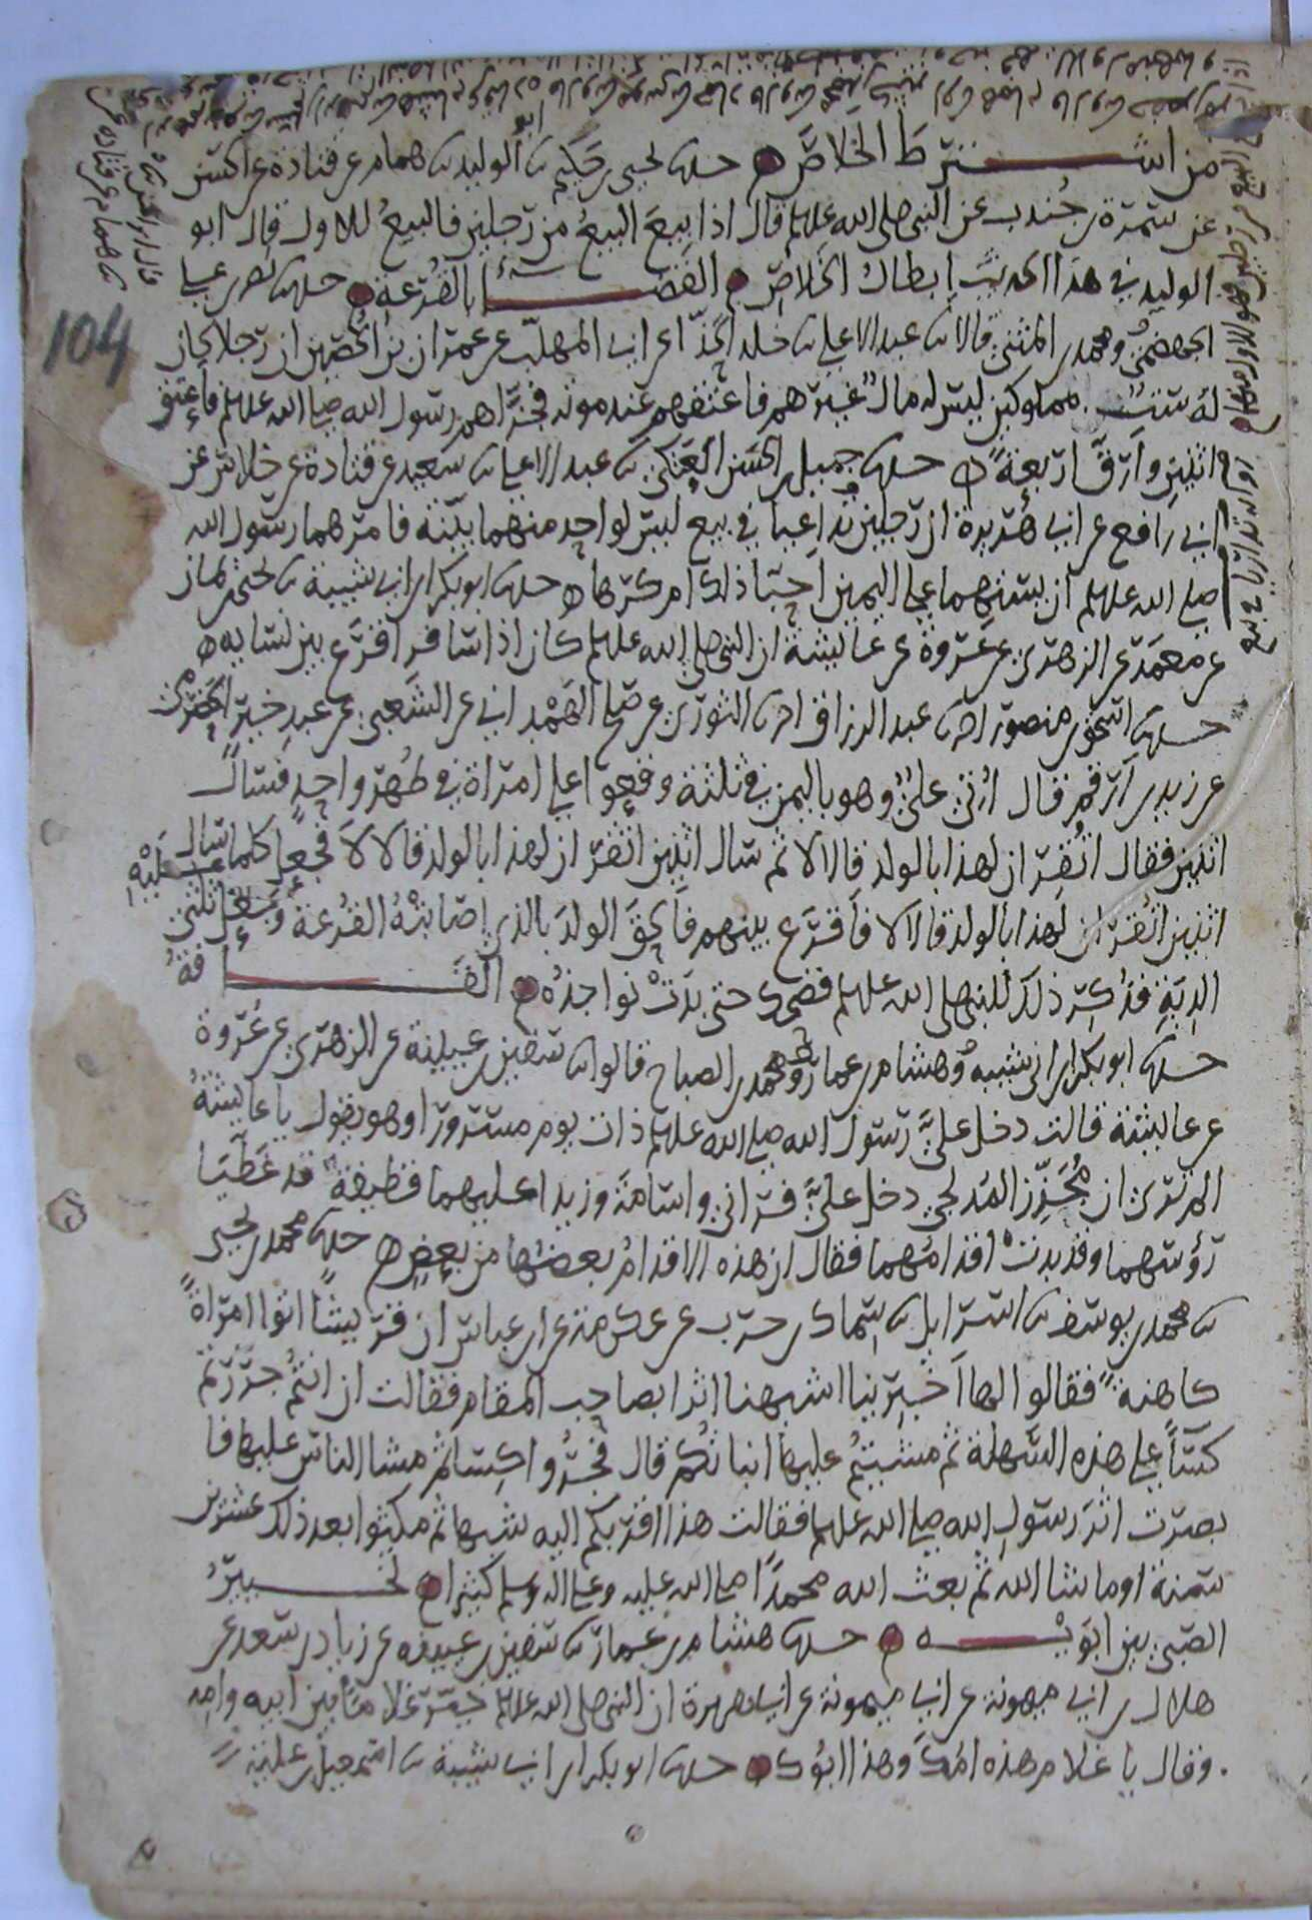 من اشترط الخلاص حدثنا يحيى بن حكيم ثنا ابو الوليد ثنا همام عن قتادة عن الحسن
عن سمرة بن جندب عن النبي صلى الله عليه وسلم قال اذا بيع البيع من رجلين فالبيع للاول قال ابو
الوليد في هذا الحديث ابطال الخلاص القضاء بالقرعة حدثنا نصر بن علي
الجهضمي ومحمد بن المثنى قالا ثنا عبد الاعلى ثنا خلد الحذاء عن ابي المهلب عن عمران بن الحصين ان رجلا كان
له ستة مملوكين ليس له مال غيرهم فاعتقهم عند موته فجزاهم رسول الله صلى الله عليه وسلم فاعتق
اثنين وارق اربعة حدثنا جميل بن الحسن العتكي ثنا عبد الاعلى ثنا سعيد عن قتادة عن خلاس عن
ابي رافع عن ابي هريرة ان رجلين تداعيا في بيع ليس لواحد منهما بينة فامرهما رسول الله
صلى الله عليه وسلم ان يستهما على اليمين احبا ذلك ام كرها حدثنا ابو بكر بن ابي شيبة ثنا يحيى بن يمان
عن معمر عن الزهري عن عروة عن عائشة ان النبي صلى الله عليه وسلم كان اذا سافر اقرع بين نسايه
حدثنا اسحق بن منصور انا عبد الرزاق انا الثوري عن صلح الهمداني عن الشعبي عن عبد خير الحضرمي
عن زيد بن ارقم قال اتي علي وهو باليمن في ثلثة وقعوا على امراة في طهر واحد فسال
اثنين فقال اتقران لهذا بالولد قالا لا ثم سال اثنين اتقران لهذا بالولد قالا لا فجعل كلما سال
اثنين اتقران لهذا بالولد قالا لا فاقرع بينهم فالحق الولد بالذي اصابته القرعة وجعل عليه ثلثي
الدية فذكر ذلك للنبي صلى الله عليه وسلم فضحك حتى بدت نواجذه القافة
حدثنا ابو بكر بن ابي شيبه وهشام بن عمار ومحمد بن الصباح قالوا ثنا سفين بن عيينة عن الزهري عن عروة
عن عائشة قالت دخل علي رسول الله صلى الله عليه وسلم ذات يوم مسرورا وهو يقول يا عائشة
الم تري ان مجزز المدلجي دخل علي فراني واسامة وزيدا عليهما قطيفة قد غطيا
رؤسهما وقد بدت اقدامهما فقال ان هذه الاقدام بعضها من بعض حدثنا محمد بن يحيى
ثنا محمد بن يوسف ثنا اسرايل ثنا سماك بن حرب عن عكرمة عن ابن عباس ان قريشا اتوا امراة
كاهنة فقالوا لها اخبرينا اشبهنا اثرا بصاحب المقام فقالت ان انتم جررتم
كساء على هذه السهلة ثم مشيتم عليها انباتكم قال فجروا كساء ثم مشا الناس عليها فا
بصرت اثر رسول الله صلى الله عليه وسلم فقالت هذا اقربكم اليه شبها ثم مكثوا بعد ذلك عشرين
سنة او ما شا الله ثم بعث الله محمدا صلى الله عليه وعلى اله وسلم كثيرا تخيير
الصبي بين ابويه حدثنا هشام بن عمار ثنا سفين بن عيينه عن زياد بن سعد عن
هلال بن ابي ميمونة عن ابي ميمونة عن ابي هريرة ان النبي صلى الله عليه وسلم خير غلاما بين ابيه وامه
وقال يا غلام هذه امك وهذا ابوك حدثنا ابو بكر بن ابي شيبة ثنا اسمعيل بن علية
104